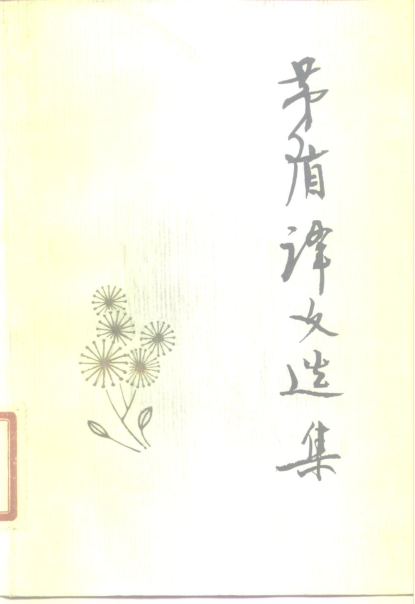 茅盾译文选集